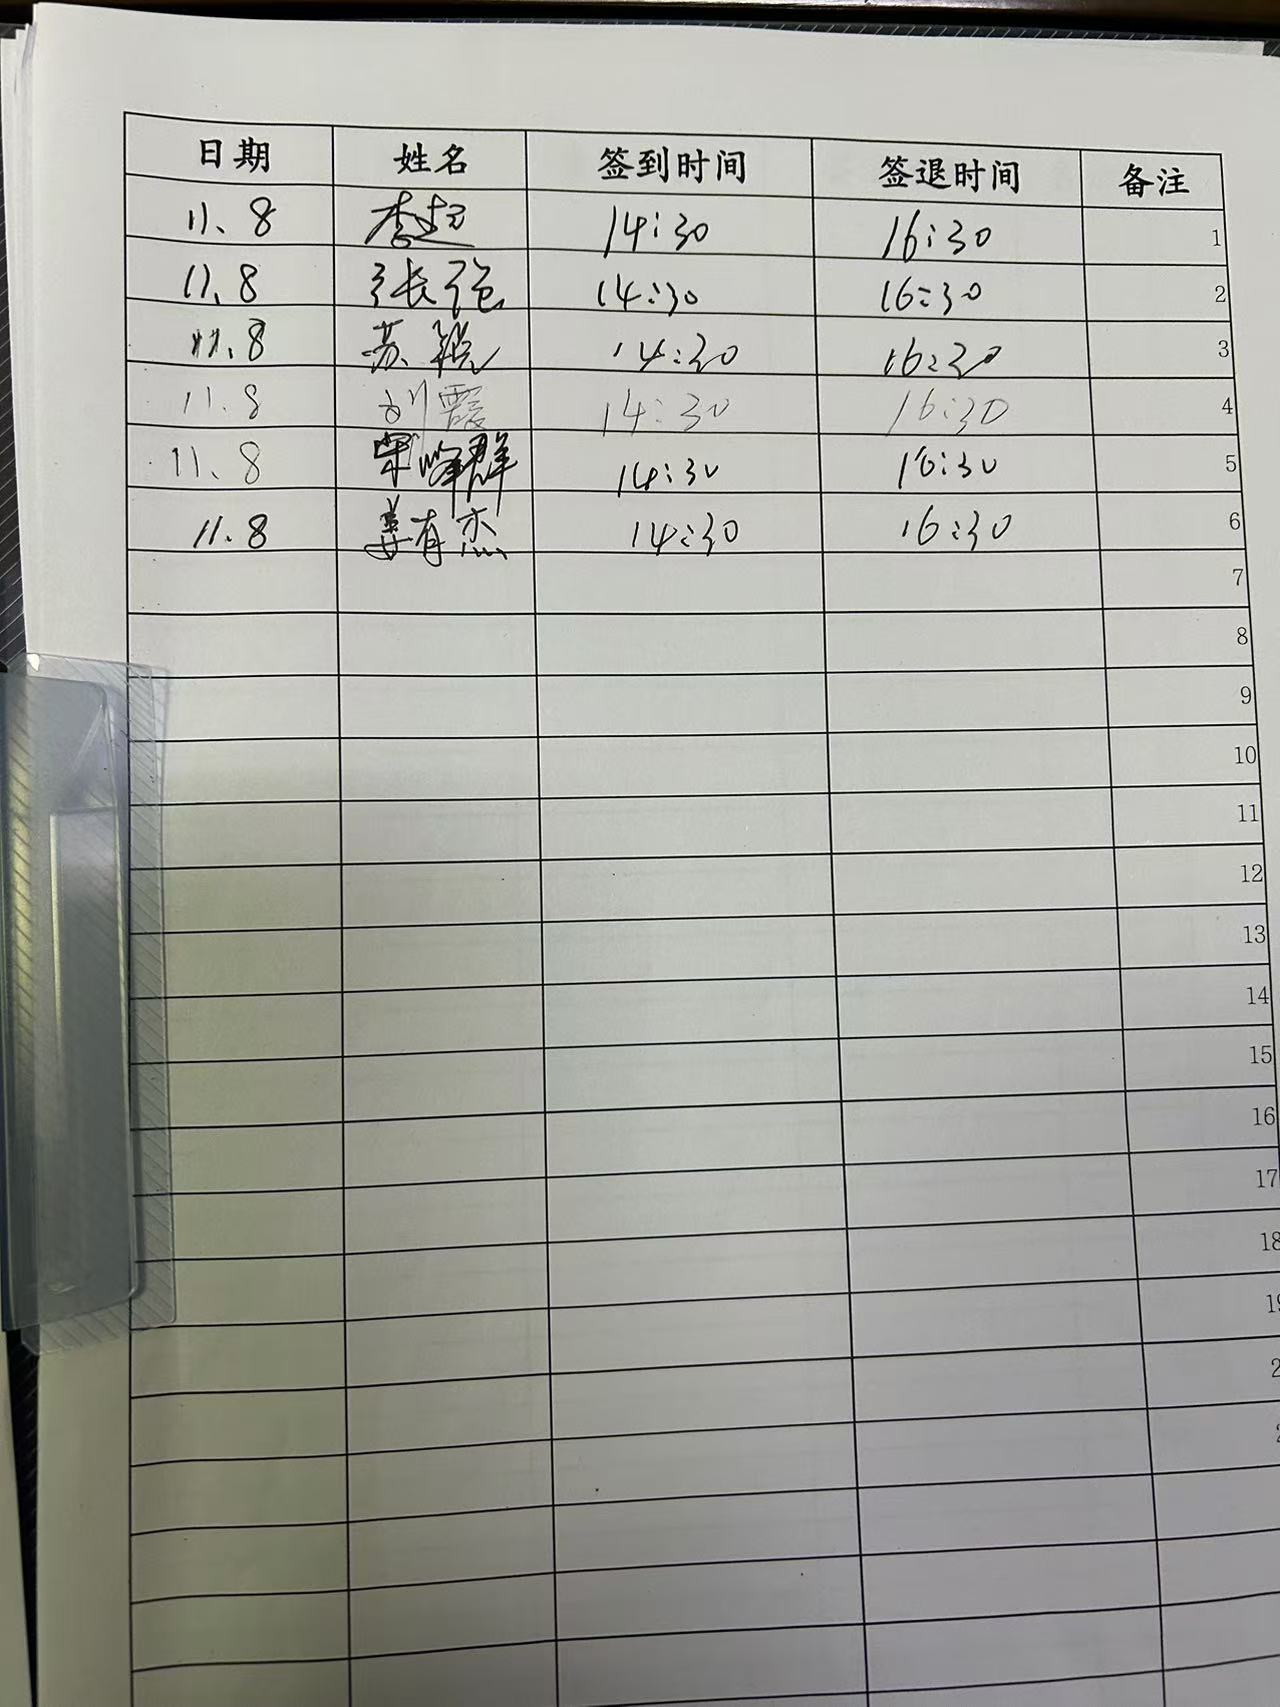 日期 姓名 签到时间 签退时间 备注
11、8 李超 14:30 16:30 1
11.8 张强 14:30 16:30 2
11.8 苏锐 14:30 16:30 3
11.8 刘霞 14:30 16:30 4
11.8 宋峰群 14:30 16:30 5
11.8 姜有杰 14:30 16:30 6
7
8
9
10
11
12
13
14
15
16
17
18